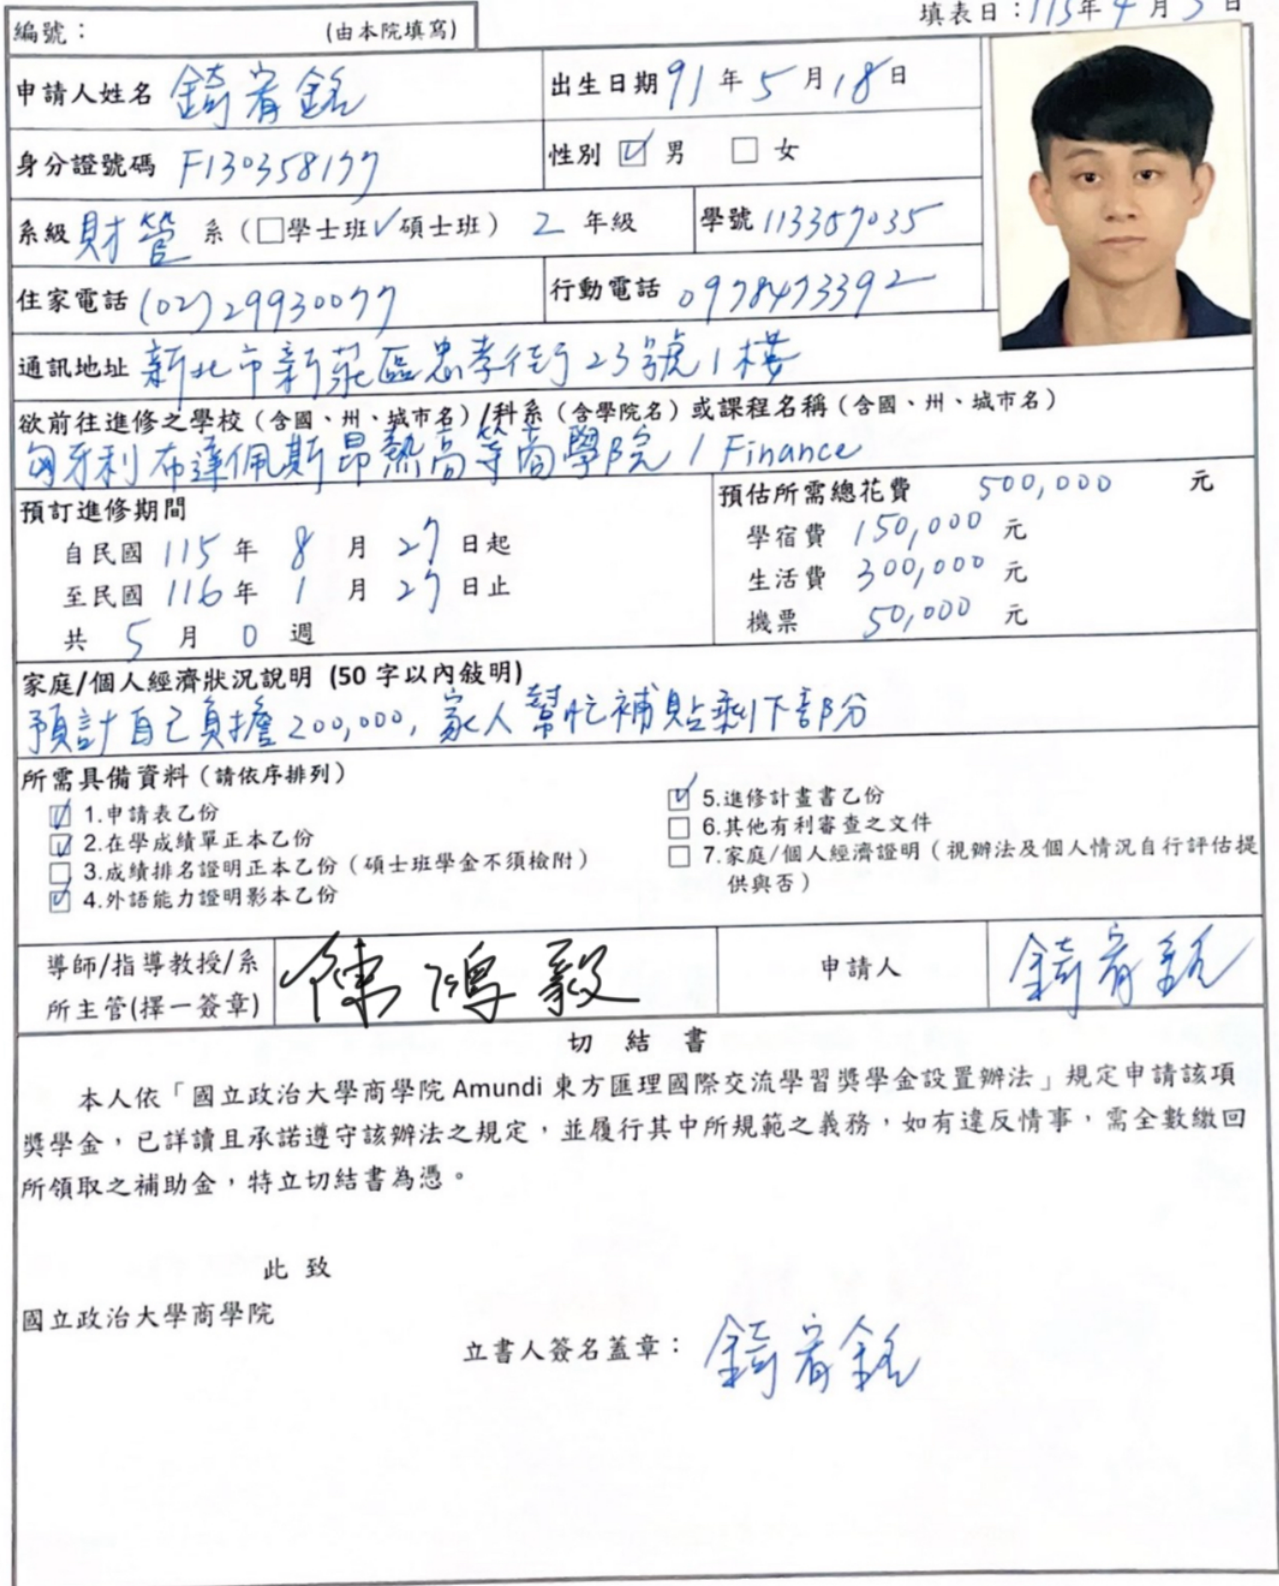 編號： (由本院填寫)
填表日：115年4月3日
申請人姓名 錡宥銘
出生日期 91年5月18日
身分證號碼 F130358177
性別 ☑ 男 □ 女
系級 財管 系（□學士班✓碩士班） 2 年級
學號 113357035
住家電話 (02)29930077
行動電話 0978473392
通訊地址 新北市新莊區忠孝街23號1樓
欲前往進修之學校（含國、州、城市名）/科系（含學院名）或課程名稱（含國、州、城市名）
匈牙利布達佩斯昂熱高等商學院 / Finance
預訂進修期間
自民國 115 年 8 月 27 日起
至民國 116 年 1 月 27 日止
共 5 月 0 週
預估所需總花費 500,000 元
學宿費 150,000 元
生活費 300,000 元
機票 50,000 元
家庭/個人經濟狀況說明 (50 字以內敍明)
預計自己負擔200,000, 家人幫忙補貼剩下部分
所需具備資料（請依序排列）
☑ 1.申請表乙份
☑ 2.在學成績單正本乙份
□ 3.成績排名證明正本乙份（碩士班學金不須檢附）
☑ 4.外語能力證明影本乙份
☑ 5.進修計畫書乙份
□ 6.其他有利審查之文件
□ 7.家庭/個人經濟證明（視辦法及個人情況自行評估提
供與否）
導師/指導教授/系
所主管(擇一簽章)
陳鴻毅
申請人
錡宥銘
切 結 書
本人依「國立政治大學商學院 Amundi 東方匯理國際交流學習獎學金設置辦法」規定申請該項
獎學金，已詳讀且承諾遵守該辦法之規定，並履行其中所規範之義務，如有違反情事，需全數繳回
所領取之補助金，特立切結書為憑。
此 致
國立政治大學商學院
立書人簽名蓋章： 錡宥銘